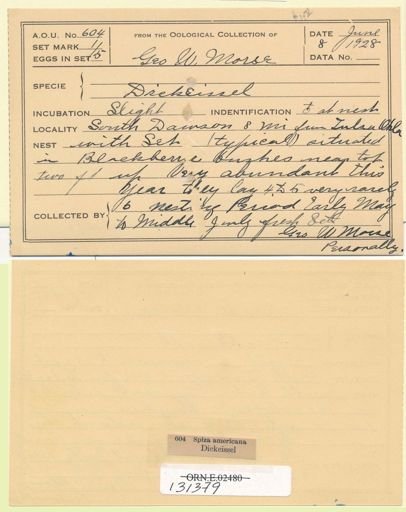 A.O.U. No. 604
SET MARK 1/5
EGGS IN SET
FROM THE OOLOGICAL COLLECTION OF
Geo W. Morse
DATE June
8 1928
DATA No.
SPECIE Dickcissel
INCUBATION Slight INDENTIFICATION at nest
LOCALITY South Dawson 8 mi from Tulsa Okla
NEST with Set (typical) situated
in Blackberrie bushes near top
two ft up Very abundant this
year they lay 4 to 5 very rarely
6 nesting Period Early May
COLLECTED BY to Middle July fresh
Geo W Morse
Personally.
604 Spiza americana
Dickcissel
ORN.E.02480
131379